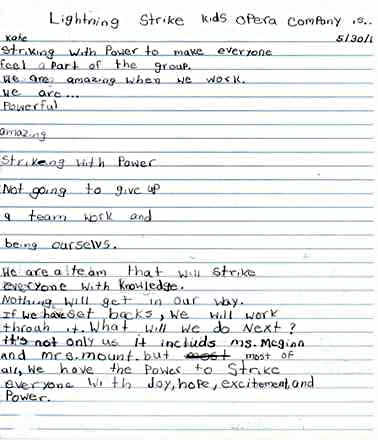 Lightning Strike kids opera company is..
Kate 5/30/1
Striking with Power to make everyone
feel a part of the group.
We are amazing when we work.
We are...
Powerful
amazing
Strikeing with Power
Not going to give up
a team work and
being ourselvs.
We are a team that will Strike
everyone with knowledge.
Nothing will get in our way.
If we have set backs, we will work
throuh it. What will we do Next?
it's not only us it includs ms. Mcginn
and mrs. mount. but most of
all, We have the Power to Strike
everyone With Joy, hope, excitement, and
Power.